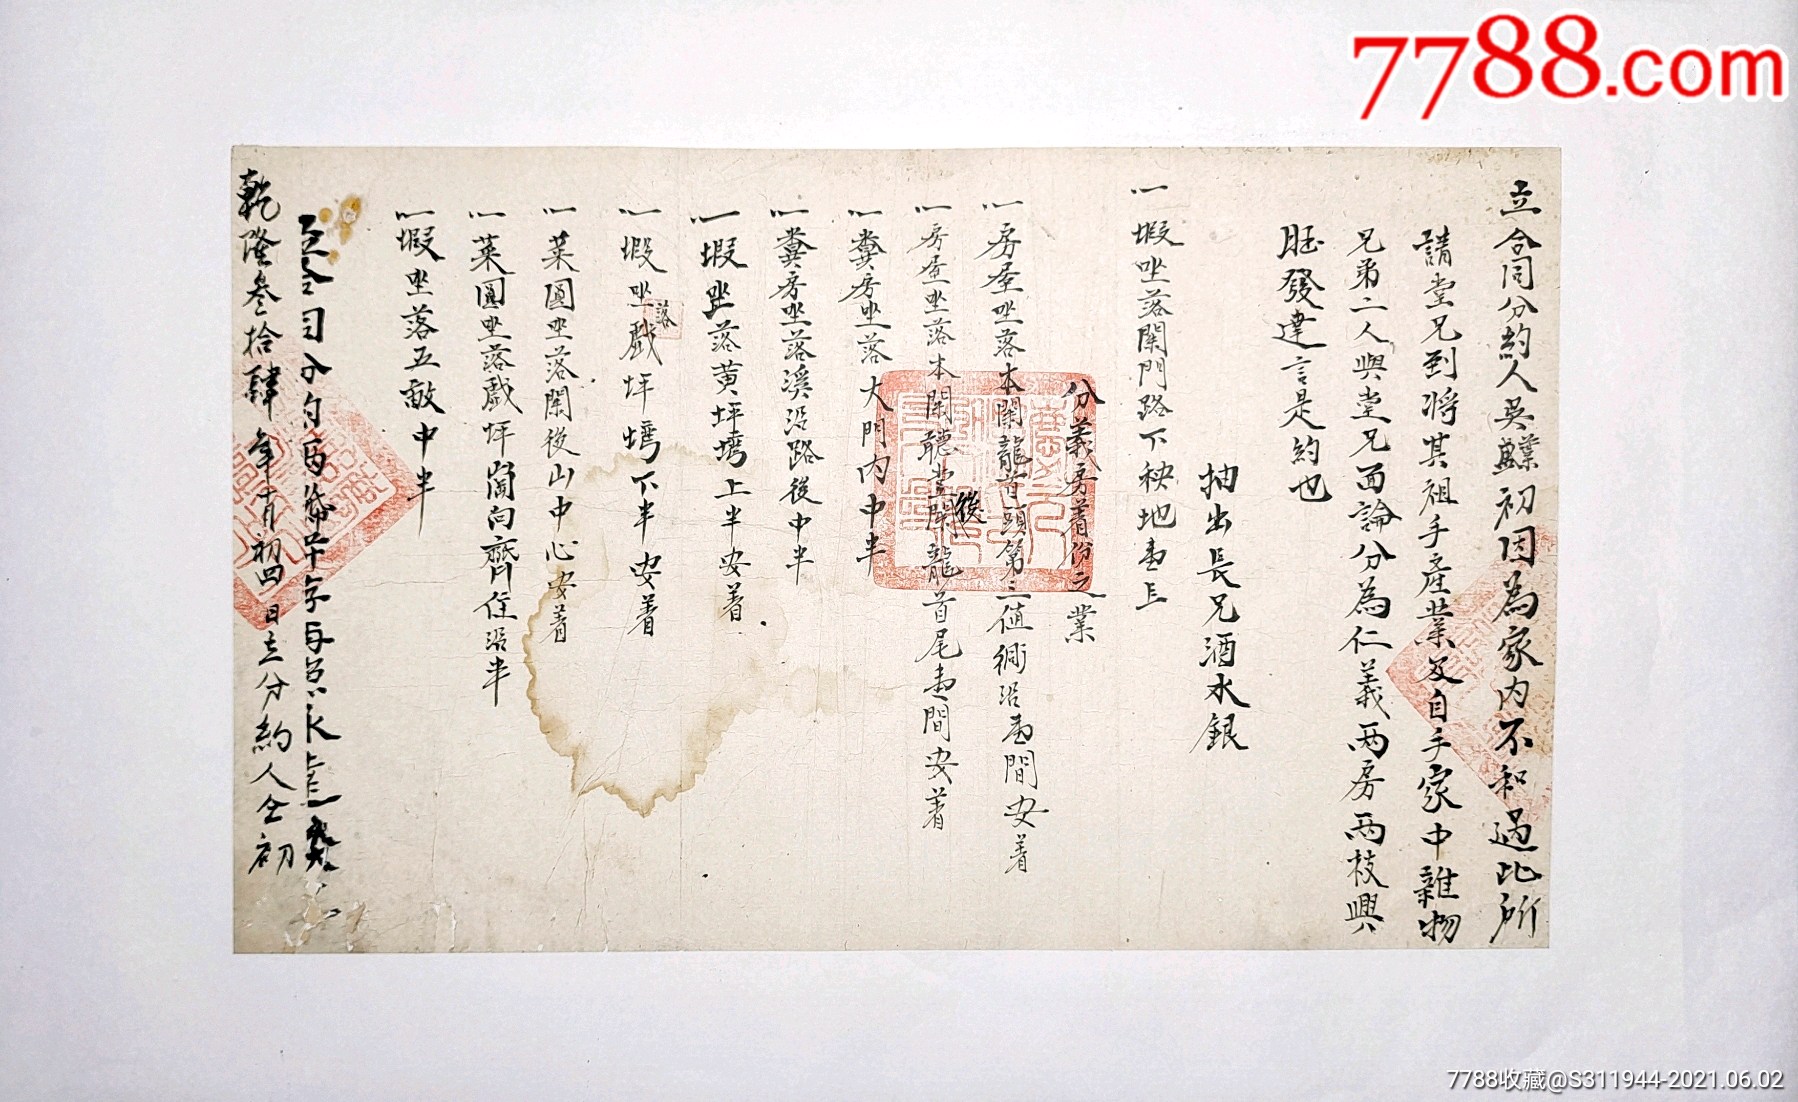 7788.com
立合同分約人吳初因為家内不和過此所
請堂兄到將其祖手產業及自手家中雜物
兄弟二人與堂兄面論分為仁義兩房兩枝興
旺發達言是約也
抽出長兄酒水銀
一塅坐落閑門路下秧地壹丘
分義房着份之業
一房屋坐落本閑龍首頭第三值衕沿壹間安着
一房屋坐落本閑聽堂閑後龍首尾壹間安着
一糞房坐落大門内中半
一糞房坐落溪沿路後中半
一塅坐落黄坪塆上半安着
一塅坐落戲坪塆下半安着
一菜園坐落閑後山中心安着
一菜園坐落戲坪崗向齊住沿半
一塅坐落五畝中半
乾隆叁拾肆年十月初四日立分約人仝初
7788收藏@S311944-2021.06.02